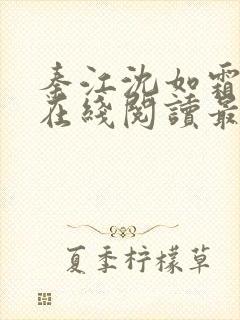 秦江沈如霜
在綫閱讀最
夏季柠檬草